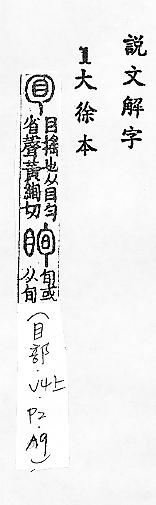 說文解字
1大徐本
目搖也从目勻
省聲黃絢切
旬或
从旬
(目部 V4上 P2 A9)